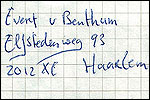 Evert v Benthum
Elfstedenweg 93
2012 XE Haarlem